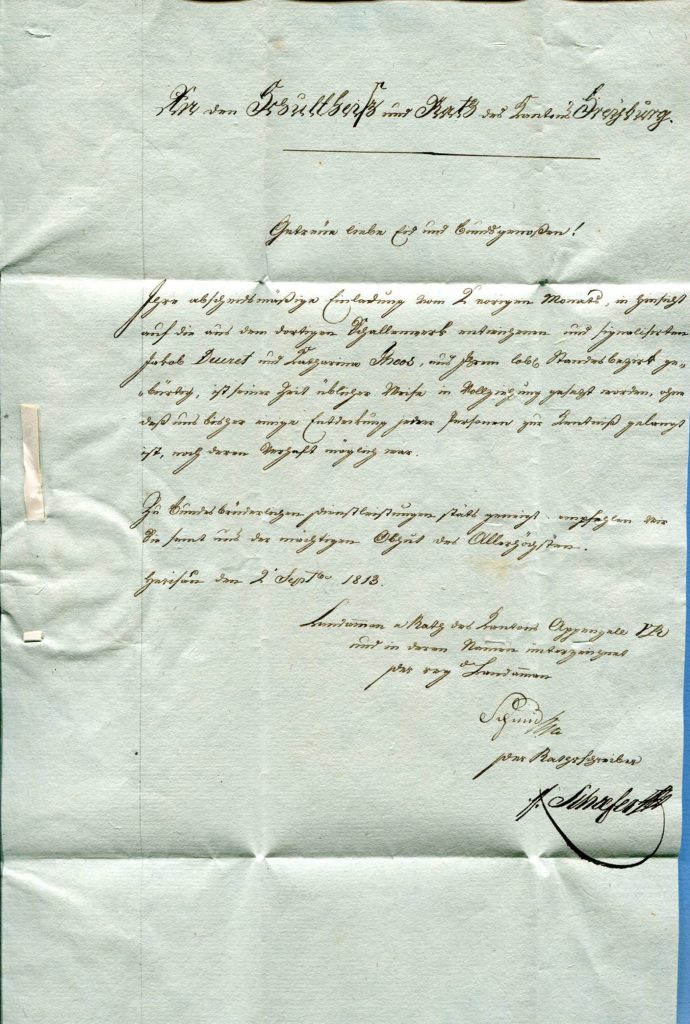 An den Schultheiß und Rath des Kantons Freyburg.
Getreüe liebe Eid und Bundsgenoßen!
Ihre abscheidsmäßige Einladung vom 2 vorigen Monats, in Hinsicht
auf die aus dem dortigen Schallenwerk entwichenen und signalisirten
Jakob Decret und Katharina, aus Ihrem lobl Standesbezirk ge-
=bürtig, ist seiner Zeit üblicher Weise in Vollziehung gesezt worden, ohne
daß uns bisher einige Entdeckung jener Personen zur Kentniß gelangt
ist, noch deren Verhaft möglich war.
Zu bundesbrüderlichen Dienstleistungen stäts geneigt, empfehlen wir
Sie samt uns der mächtigen Obhut des Allerhöchsten.
Herisau den 2 Septbr 1813.
Landamman & Rath des Kantons Appenzell VR
und in deren Namen unterzeichnet
der reg Landamman
Schmid
der Rathschreiber
Schæfer